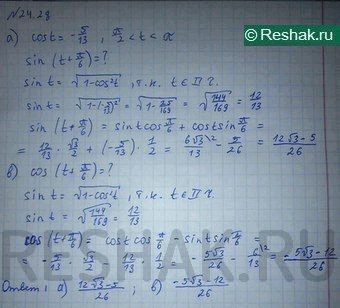 Reshak.ru
№24.29
а) cost = -5/13, π/2 < t < π
sin (t + π/6) = ?
sin t = √(1-cos²t), т.к. t ∈ II ч.
sin t = √(1-(-5/13)²) = √(1-25/169) = √(144/169) = 12/13
sin (t + π/6) = sint cos π/6 + cost sin π/6 =
= 12/13 · √3/2 + (-5/13) · 1/2 = 6√3/13 - 5/26 = (12√3-5)/26
в) cos (t + π/6) = ?
sin t = √(1-cos²t), т.к. t ∈ II ч.
sin t = √(144/169) = 12/13
cos (t + π/6) = cost cos π/6 - sint sin π/6 =
= -5/13 · √3/2 - 12/13 · 1/2 = -5√3/26 - 6/13 \2 = (-5√3-12)/26
Ответ: а) (12√3-5)/26; в) (-5√3-12)/26